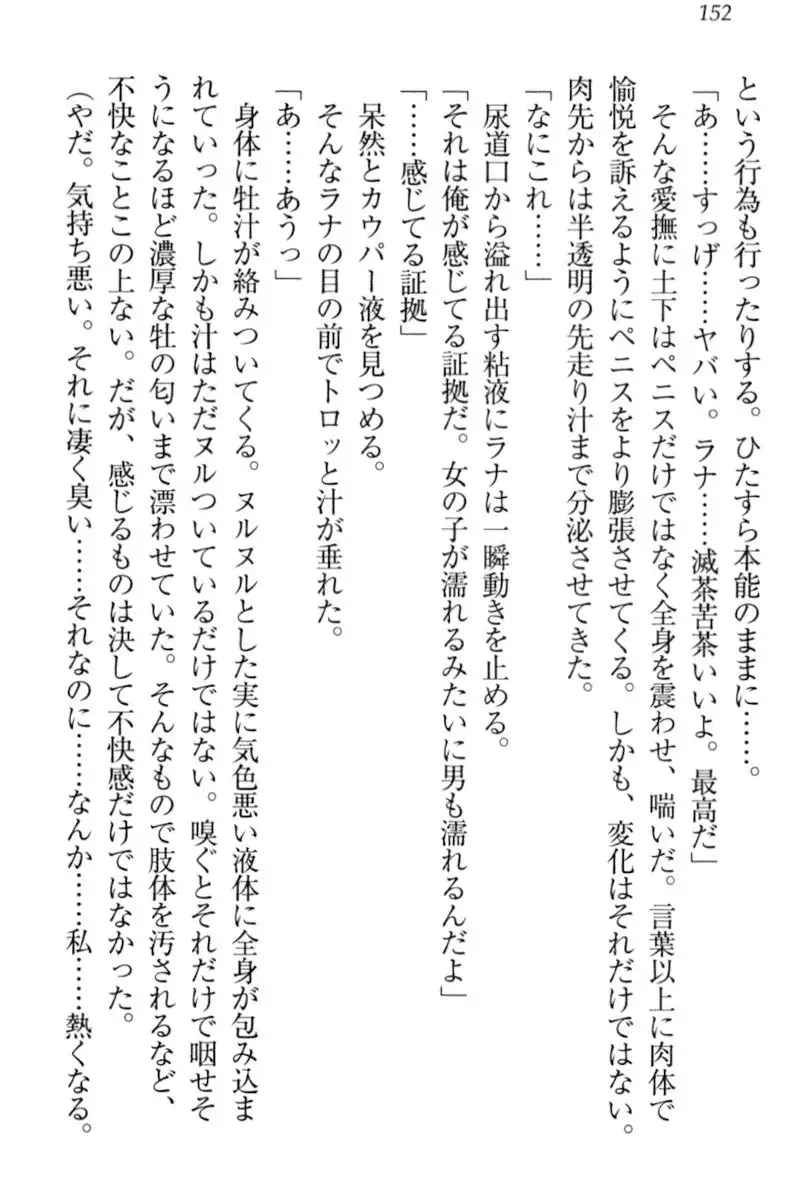 152
という行為も行ったりする。ひたすら本能のままに……。
「あ……すっげ……ヤバい。ラナ……滅茶苦茶いいよ。最高だ」
そんな愛撫に土下はペニスだけではなく全身を震わせ、喘いだ。言葉以上に肉体で
愉悦を訴えるようにペニスをより膨張させてくる。しかも、変化はそれだけではない。
肉先からは半透明の先走り汁まで分泌させてきた。
「なにこれ……」
尿道口から溢れ出す粘液にラナは一瞬動きを止める。
「それは俺が感じてる証拠だ。女の子が濡れるみたいに男も濡れるんだよ」
「……感じてる証拠」
呆然とカウパー液を見つめる。
そんなラナの目の前でトロッと汁が垂れた。
「あ……あうっ」
身体に牡汁が絡みついてくる。ヌルヌルとした実に気色悪い液体に全身が包み込ま
れていった。しかも汁はただヌルついているだけではない。嗅ぐとそれだけで咽せそ
うになるほど濃厚な牡の匂いまで漂わせていた。そんなもので肢体を汚されるなど、
不快なことこの上ない。だが、感じるものは決して不快感だけではなかった。
（やだ。気持ち悪い。それに凄く臭い……それなのに……なんか……私……熱くなる。